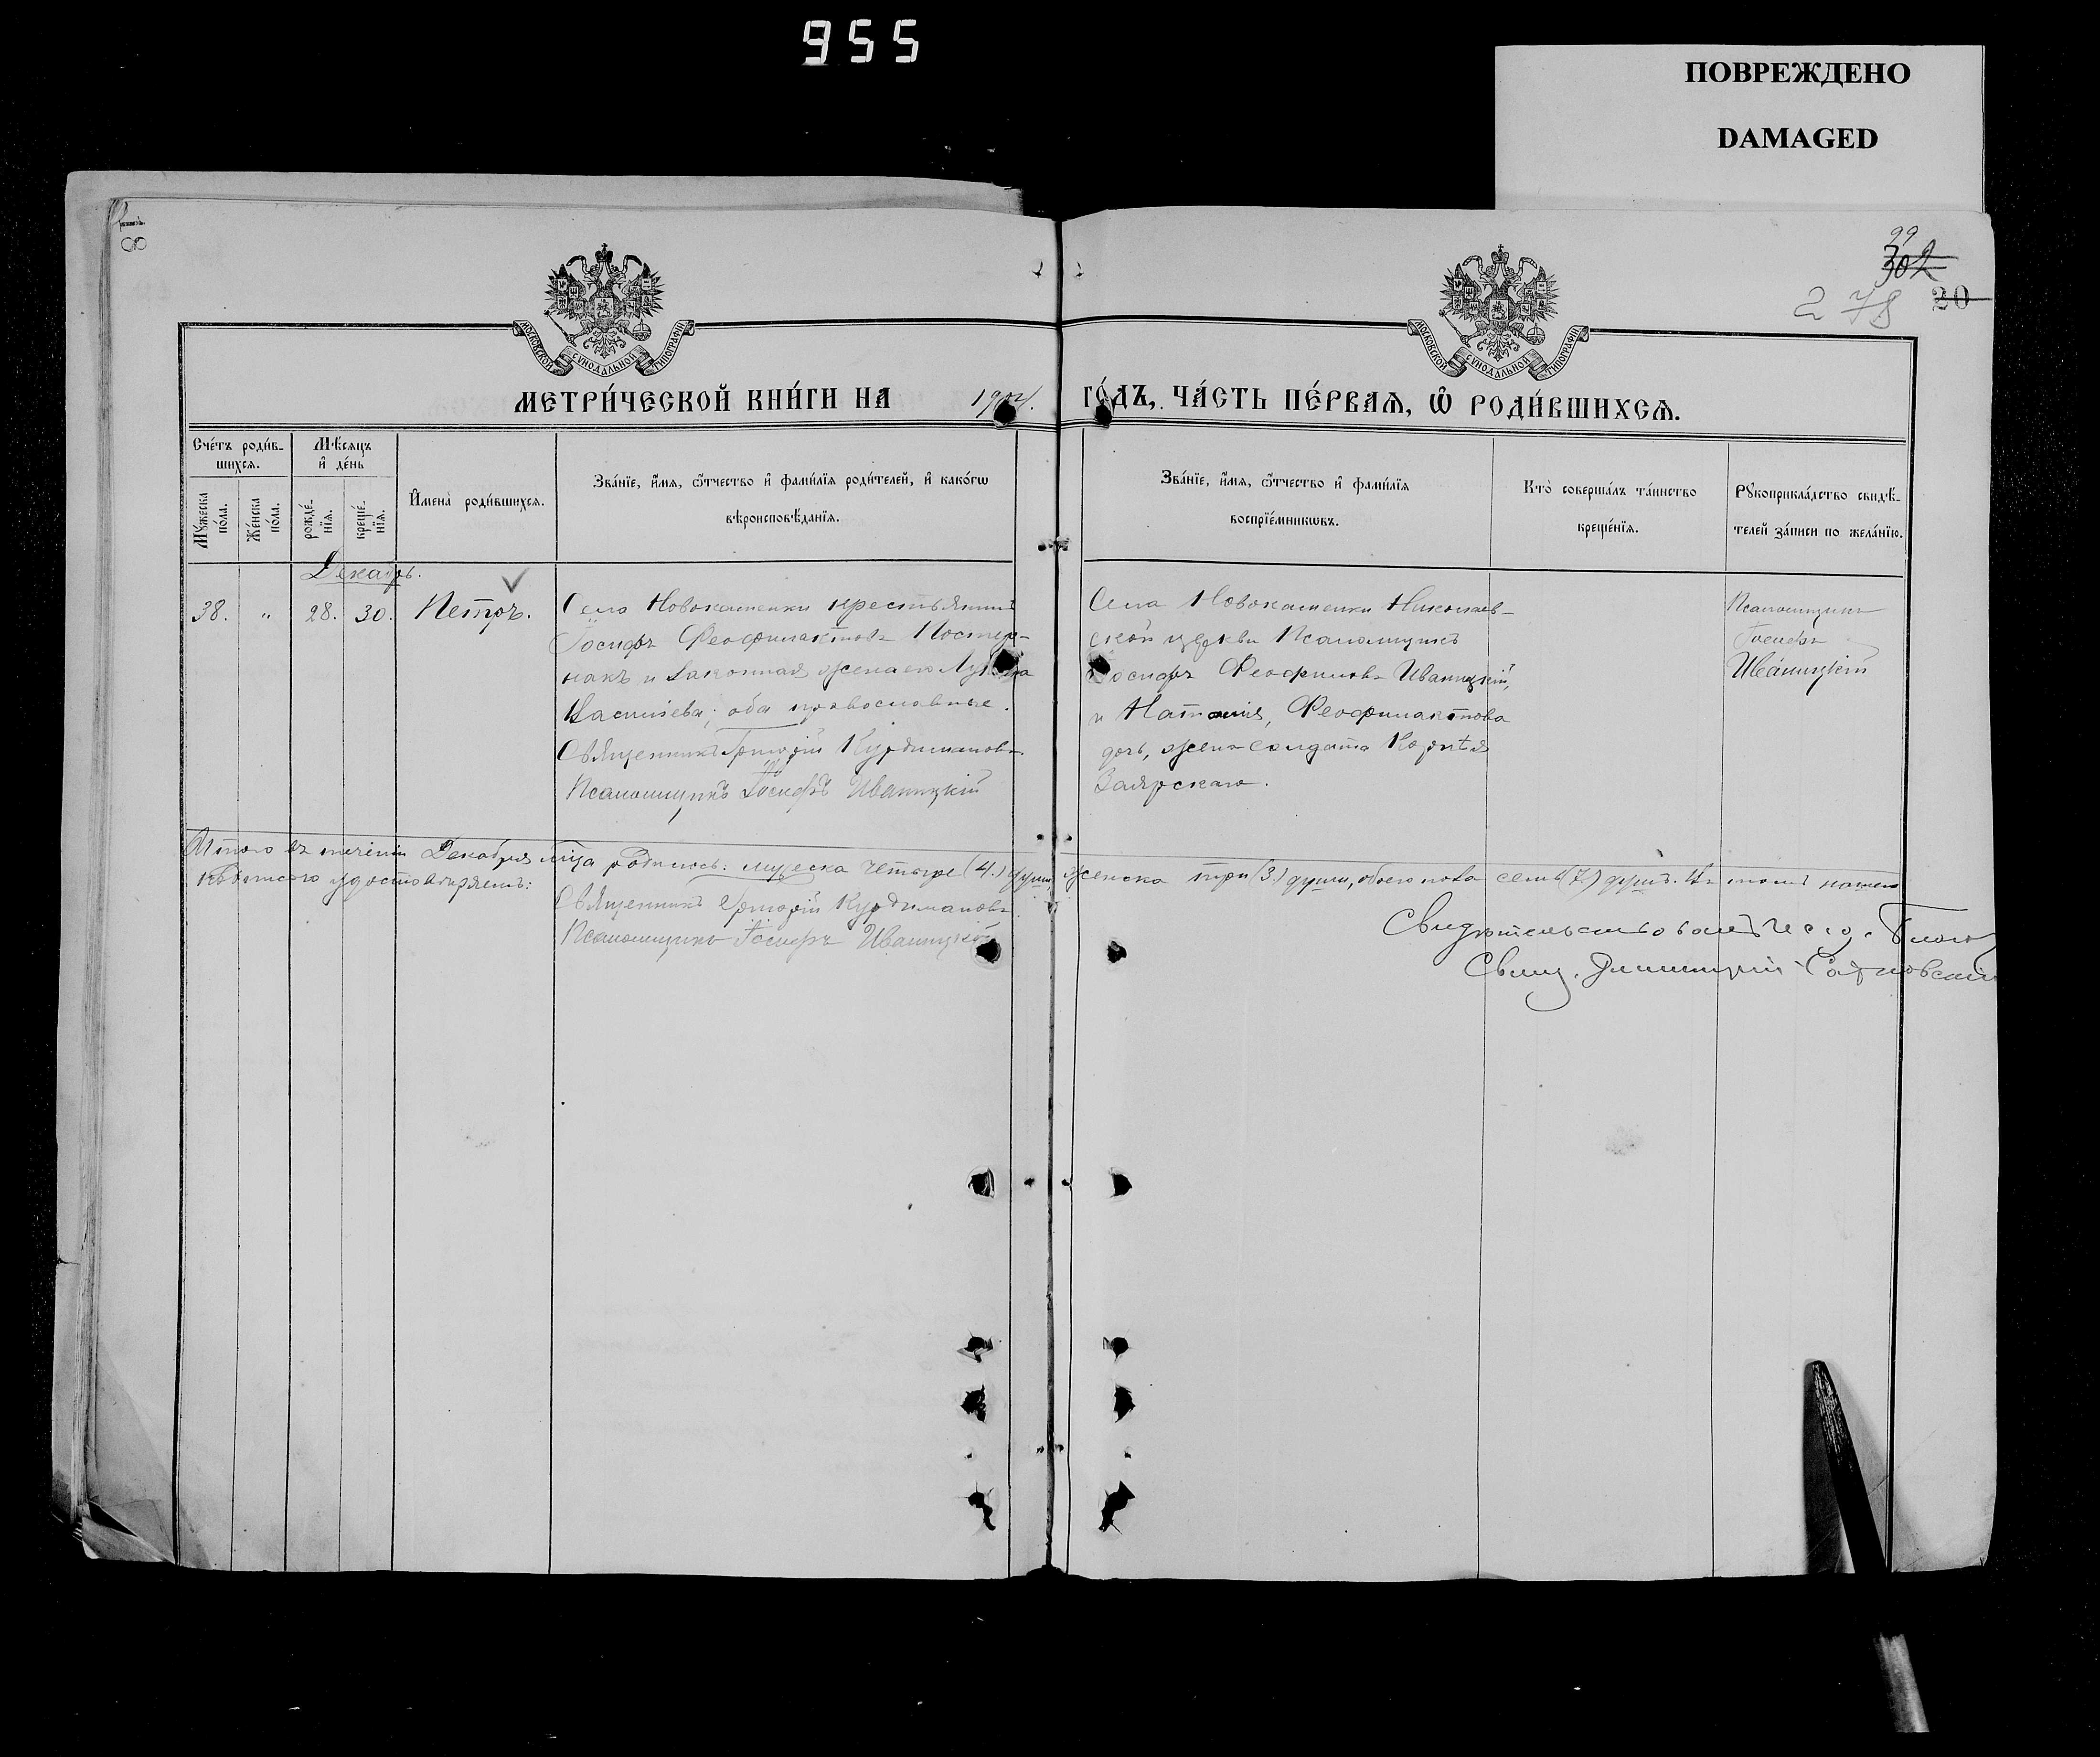 955
ПОВРЕЖДЕНО
DAMAGED
99
302
278 20
МОСКОВСКОЙ СѴНОДАЛЬНОЙ ТИПОГРАФІИ
МОСКОВСКОЙ СѴНОДАЛЬНОЙ ТИПОГРАФІИ
МЕТРИ́ЧЕСКОЙ КНИ́ГИ НА 1904. ГО́ДЪ, ЧА́СТЬ ПЕ́РВАѦ, Ѡ҆ РОДИ́ВШИХСѦ.
Сче́тъ роди́в-
шихсѧ.
Мѣ́сѧцъ
и҆ де́нь
Мꙋ́жеска
по́ла.
Же́нска
по́ла.
рожде́-
нїѧ.
креще́-
нїѧ.
И҆мена̀ роди́вшихсѧ.
Зва́нїе, и҆́мѧ, ѻ҆́тчество и҆ фами́лїѧ роди́телей, и҆ како́гѡ
вѣроисповѣ́данїѧ.
Зва́нїе, и҆́мѧ, ѻ҆́тчество и҆ фами́лїѧ
воспрїе́мникѡвъ.
Кто̀ соверша́лъ та́инство
креще́нїѧ.
Рꙋкоприкла́дство свидѣ́-
телей за́писи по жела́нїю.
Декабрь.
38. „ 28. 30. Петръ.
Села Новокаменки крестьянинъ
Іосифъ Феофилактовъ Постер-
накъ и законная жена его
Васильева; оба православные.
Священникъ Григорій Курдимановъ
Псаломщикъ Іосифъ Иваницкій
Села Новокаменки Николаев-
ской церкви Псаломщикъ
Іосифъ Феофиловъ Иваницкій,
и Наталія, Феофилактова
дочь, жена солдата Корнѣя
Заярскаго.
Псаломщикъ
Іосифъ
Иваницкій
Итого въ теченіи Декабря м-ца родилось: мужеска четыре (4.) души, женска три (3) души, обоего пола семь (7.) душъ. Въ томъ нашею
подписью удостовѣряемъ:
Священникъ Григорій Курдимановъ
Псаломщикъ Іосифъ Иваницкій
Свидѣтельствовалъ
Свящ. Димитрій